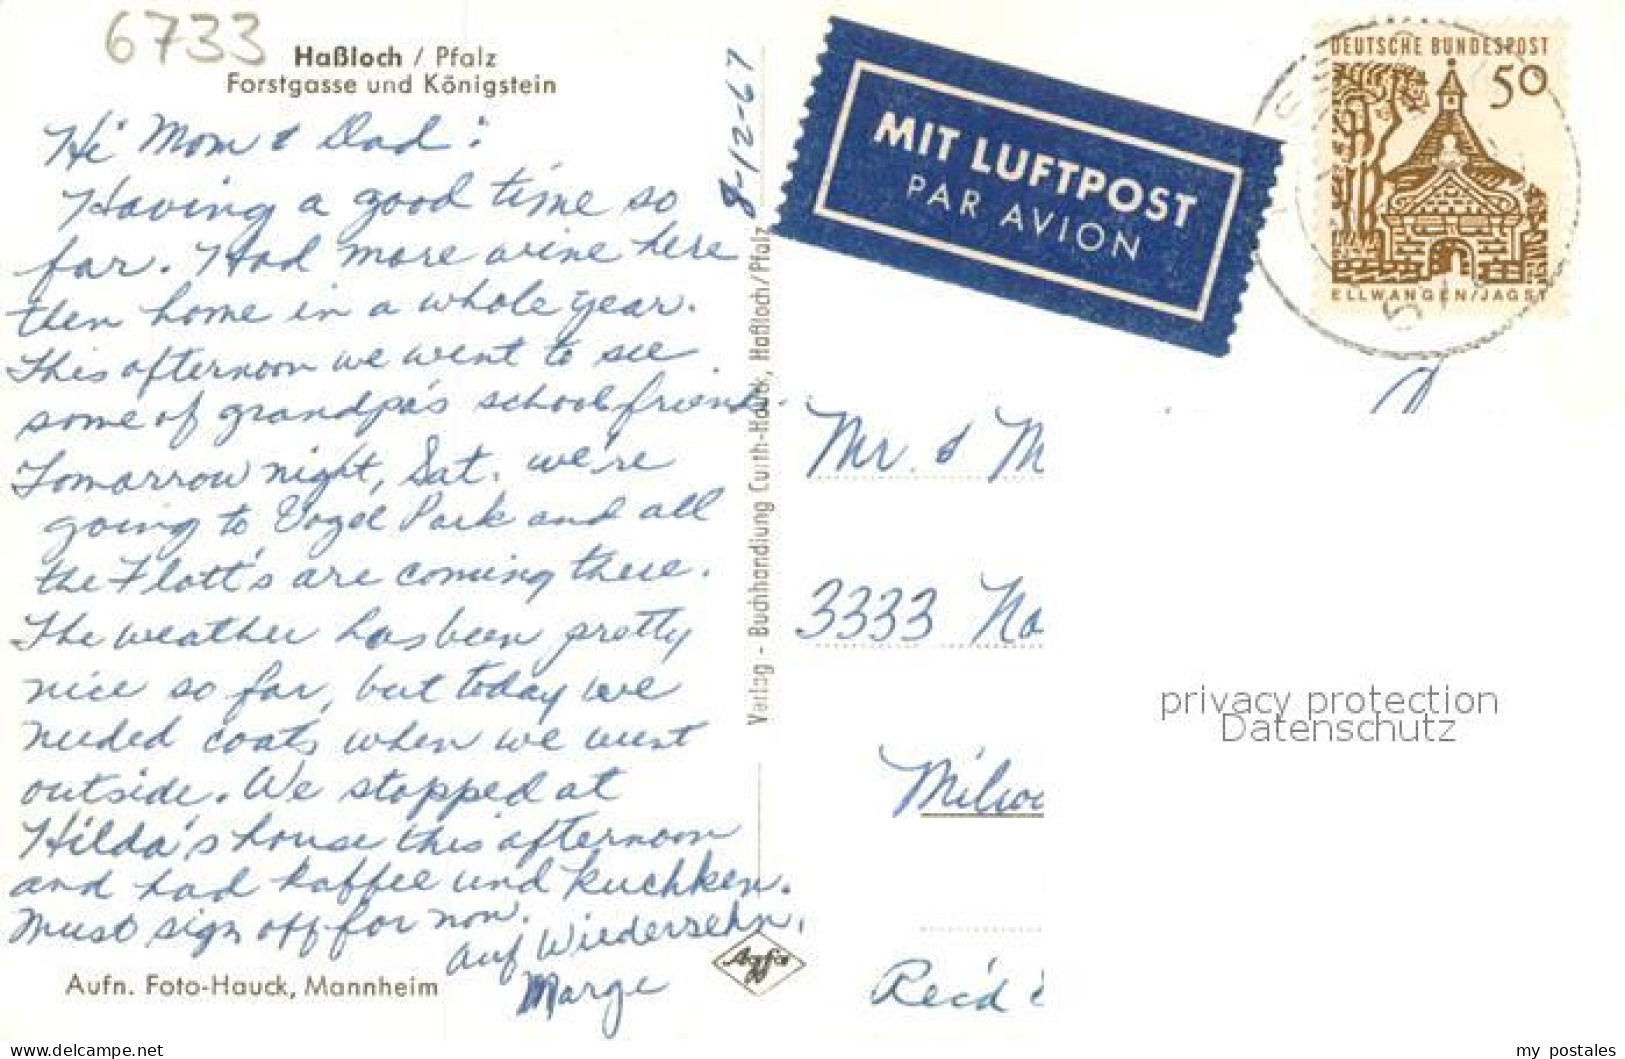 6733
Haßloch / Pfalz
Forstgasse und Königstein
Hi Mom & Dad:
Having a good time so
far. Had more wine here
then home in a whole year.
This afternoon we went to see
some of grandpa's school friends.
Tomorrow night, Sat. we're
going to Vogel Park and all
the Flott's are coming there.
The weather has been pretty
nice so far, but today we
needed coats when we went
outside. We stopped at
Hilda's house this afternoon
and had kaffee und kuchken.
Must sign off for now.
Auf Wiedersehn,
Marge
Aufn. Foto-Hauck, Mannheim
8-12-67
Verlag - Buchhandlung Curth-Hauck, Haßloch/Pfalz
Agfa
MIT LUFTPOST
PAR AVION
DEUTSCHE BUNDESPOST
50
ELLWANGEN/JAGST
Mr. & M
3333 No
Milwa
Rec'd
privacy protection
Datenschutz
www.delcampe.net
my_postales